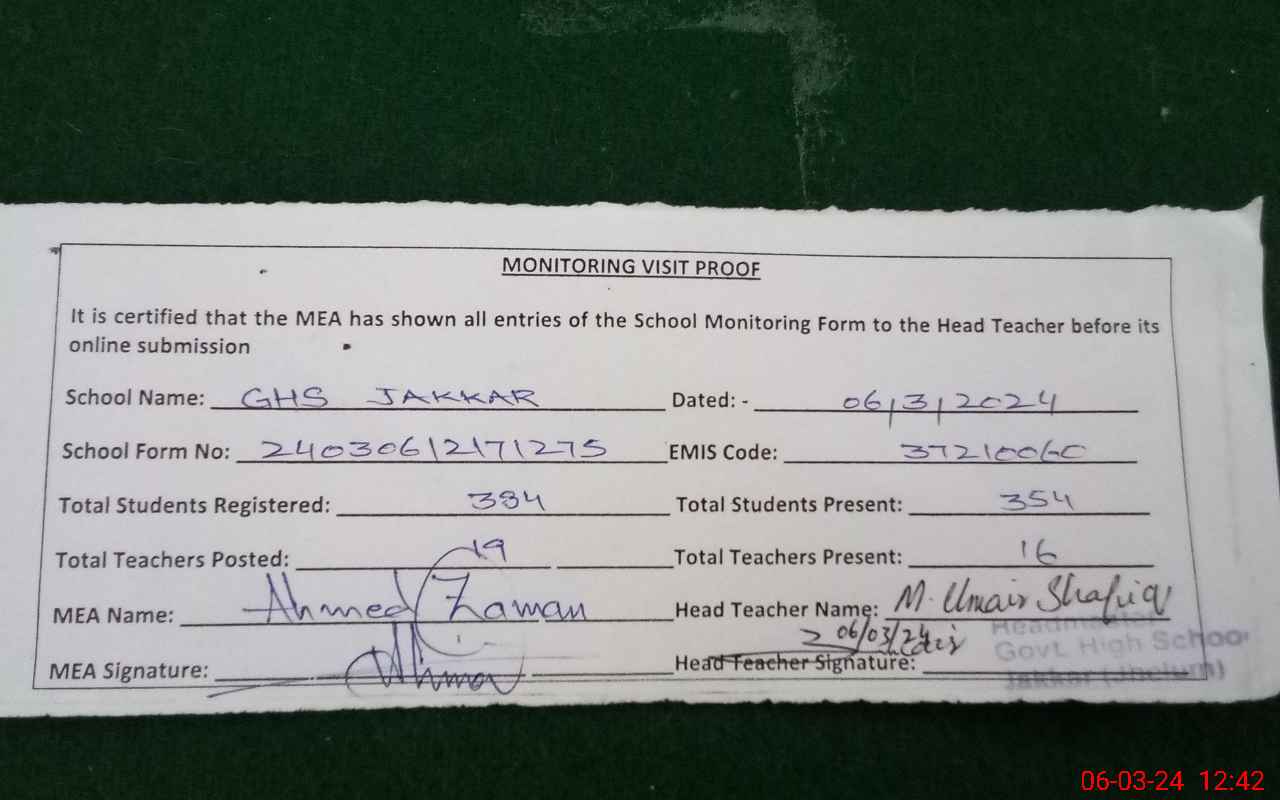 MONITORING VISIT PROOF
It is certified that the MEA has shown all entries of the School Monitoring Form to the Head Teacher before its
online submission
School Name: GHS JAKKAR Dated: - 06/3/2024
School Form No: 24030612171275 EMIS Code: 37210060
Total Students Registered: 384 Total Students Present: 354
Total Teachers Posted: 19 Total Teachers Present: 16
MEA Name: Ahmed Zaman Head Teacher Name: M. Umair Shafiq
06/03/24 Headmaster
Govt. High School
MEA Signature: Head Teacher Signature:
Jakkar (Jhelum)
06-03-24 12:42